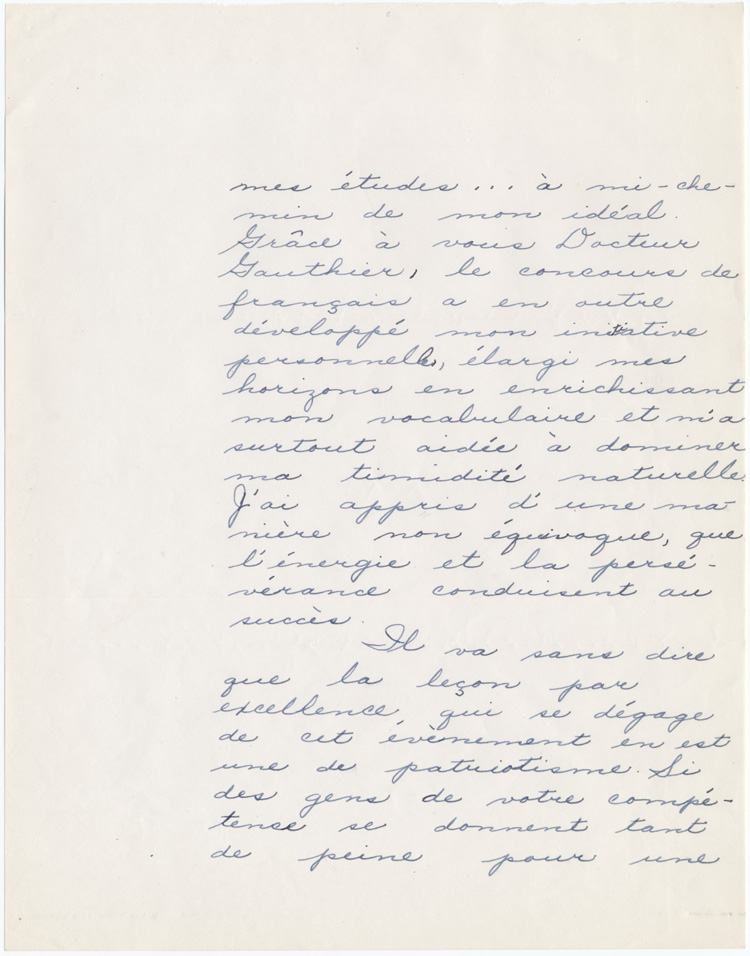 mes études ... à mi-che-
min de mon idéal.
Grâce à vous Docteur
Gauthier, le concours de
français a en outre
développé mon initiative
personnelle, élargi mes
horizons en enrichissant
mon vocabulaire et m'a
surtout aidée à dominer
ma timidité naturelle.
J'ai appris d'une ma-
nière non équivoque, que
l'énergie et la persé-
vérance conduisent au
succès.
Il va sans dire
que la leçon par
excellence qui se dégage
de cet évènement en est
une de patriotisme. Si
des gens de votre compé-
tence se donnent tant
de peine pour une